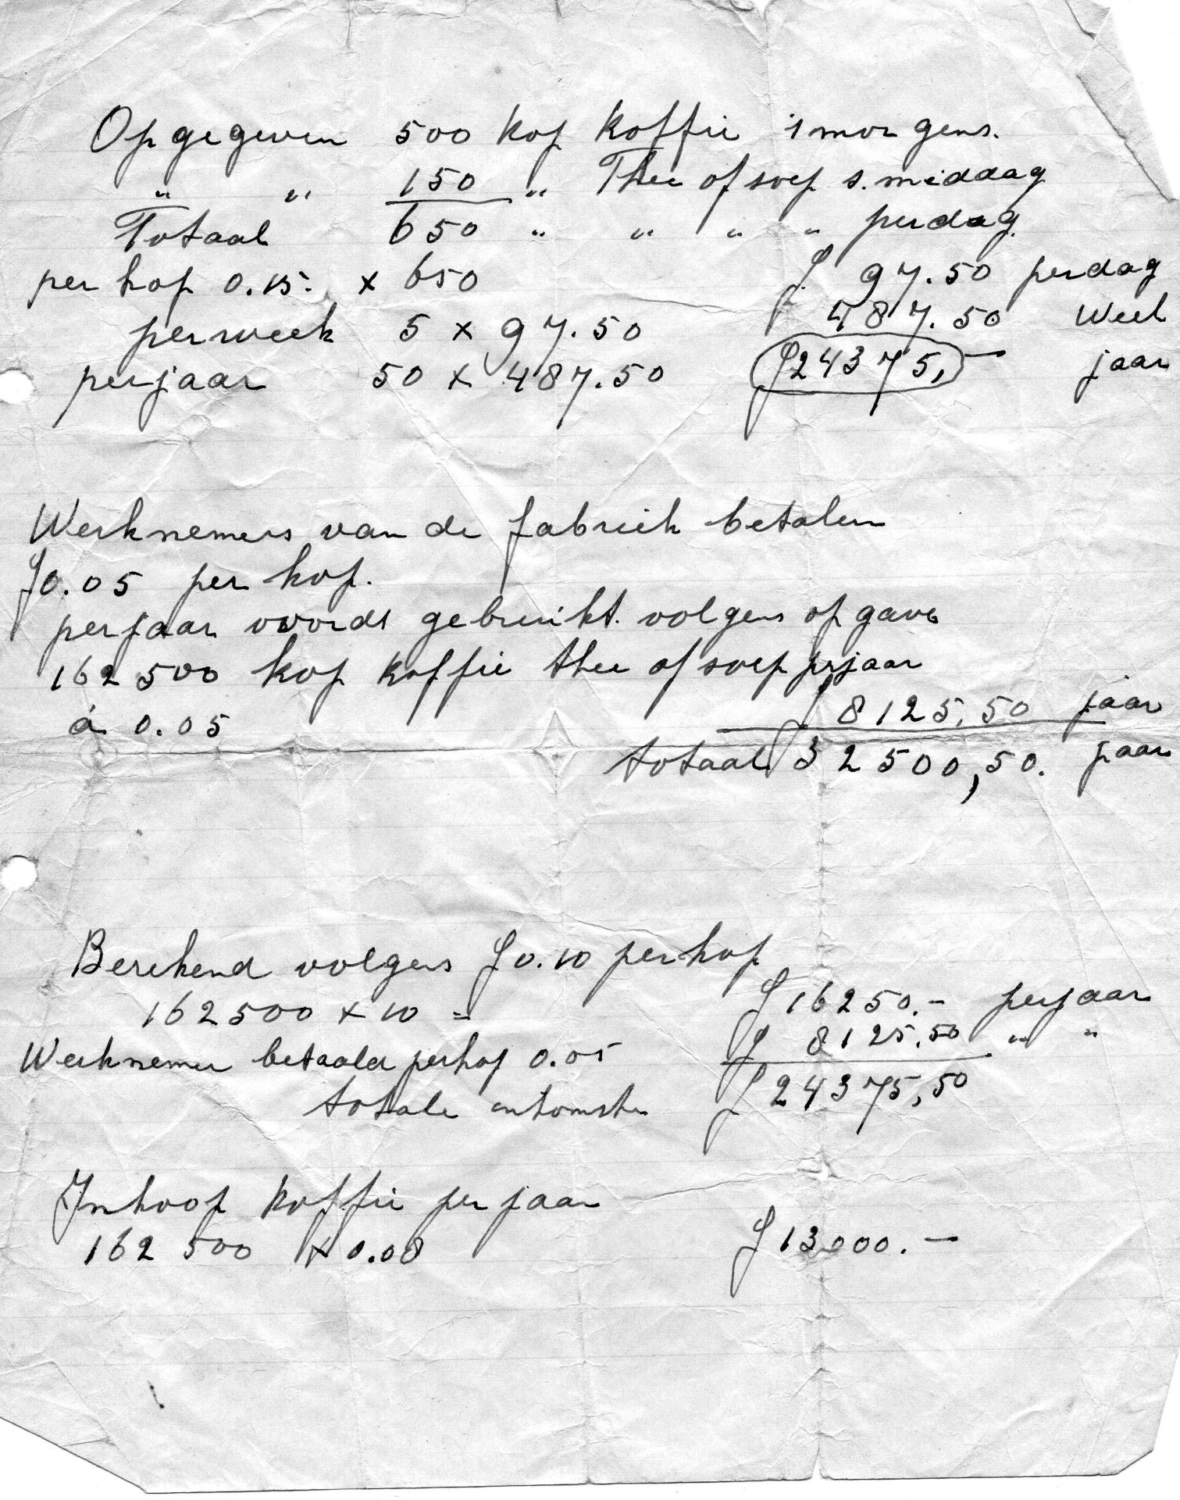 Opgegeven 500 kop koffie 's morgens.
" " 150 " Thee of soep s. middag
Totaal 650 " " " " per dag
per kop 0.15. x 650 f 97.50 per dag
per week 5 x 97.50 f 487.50 Week
per jaar 50 x 487.50 f 24375,— jaar
Werknemers van de fabriek betalen
f 0.05 per kop.
per jaar wordt gebruikt volgens opgave
162500 kop koffie thee of soep pr jaar
á 0.05 f 8125,50 jaar
totaal 32500,50. jaar
Berekend volgens f 0.10 per kop
162500 x 10 = f 16250.- per jaar
Werknemer betaald per kop 0.05 f 8125,50 " "
totale inkomste f 24375,50
Inkoop koffie per jaar
162 500 x 0.08 f 13000.—